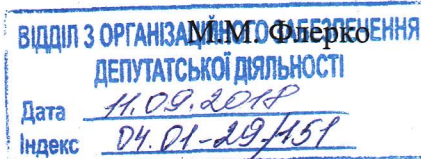 ВІДДІЛ З ОРГАНІЗАЦІЙНОГО ЗАБЕЗПЕЧЕННЯ
М.М. Флерко
ДЕПУТАТСЬКОЇ ДІЯЛЬНОСТІ
Дата 11.09.2018
Індекс 04.01-29/151